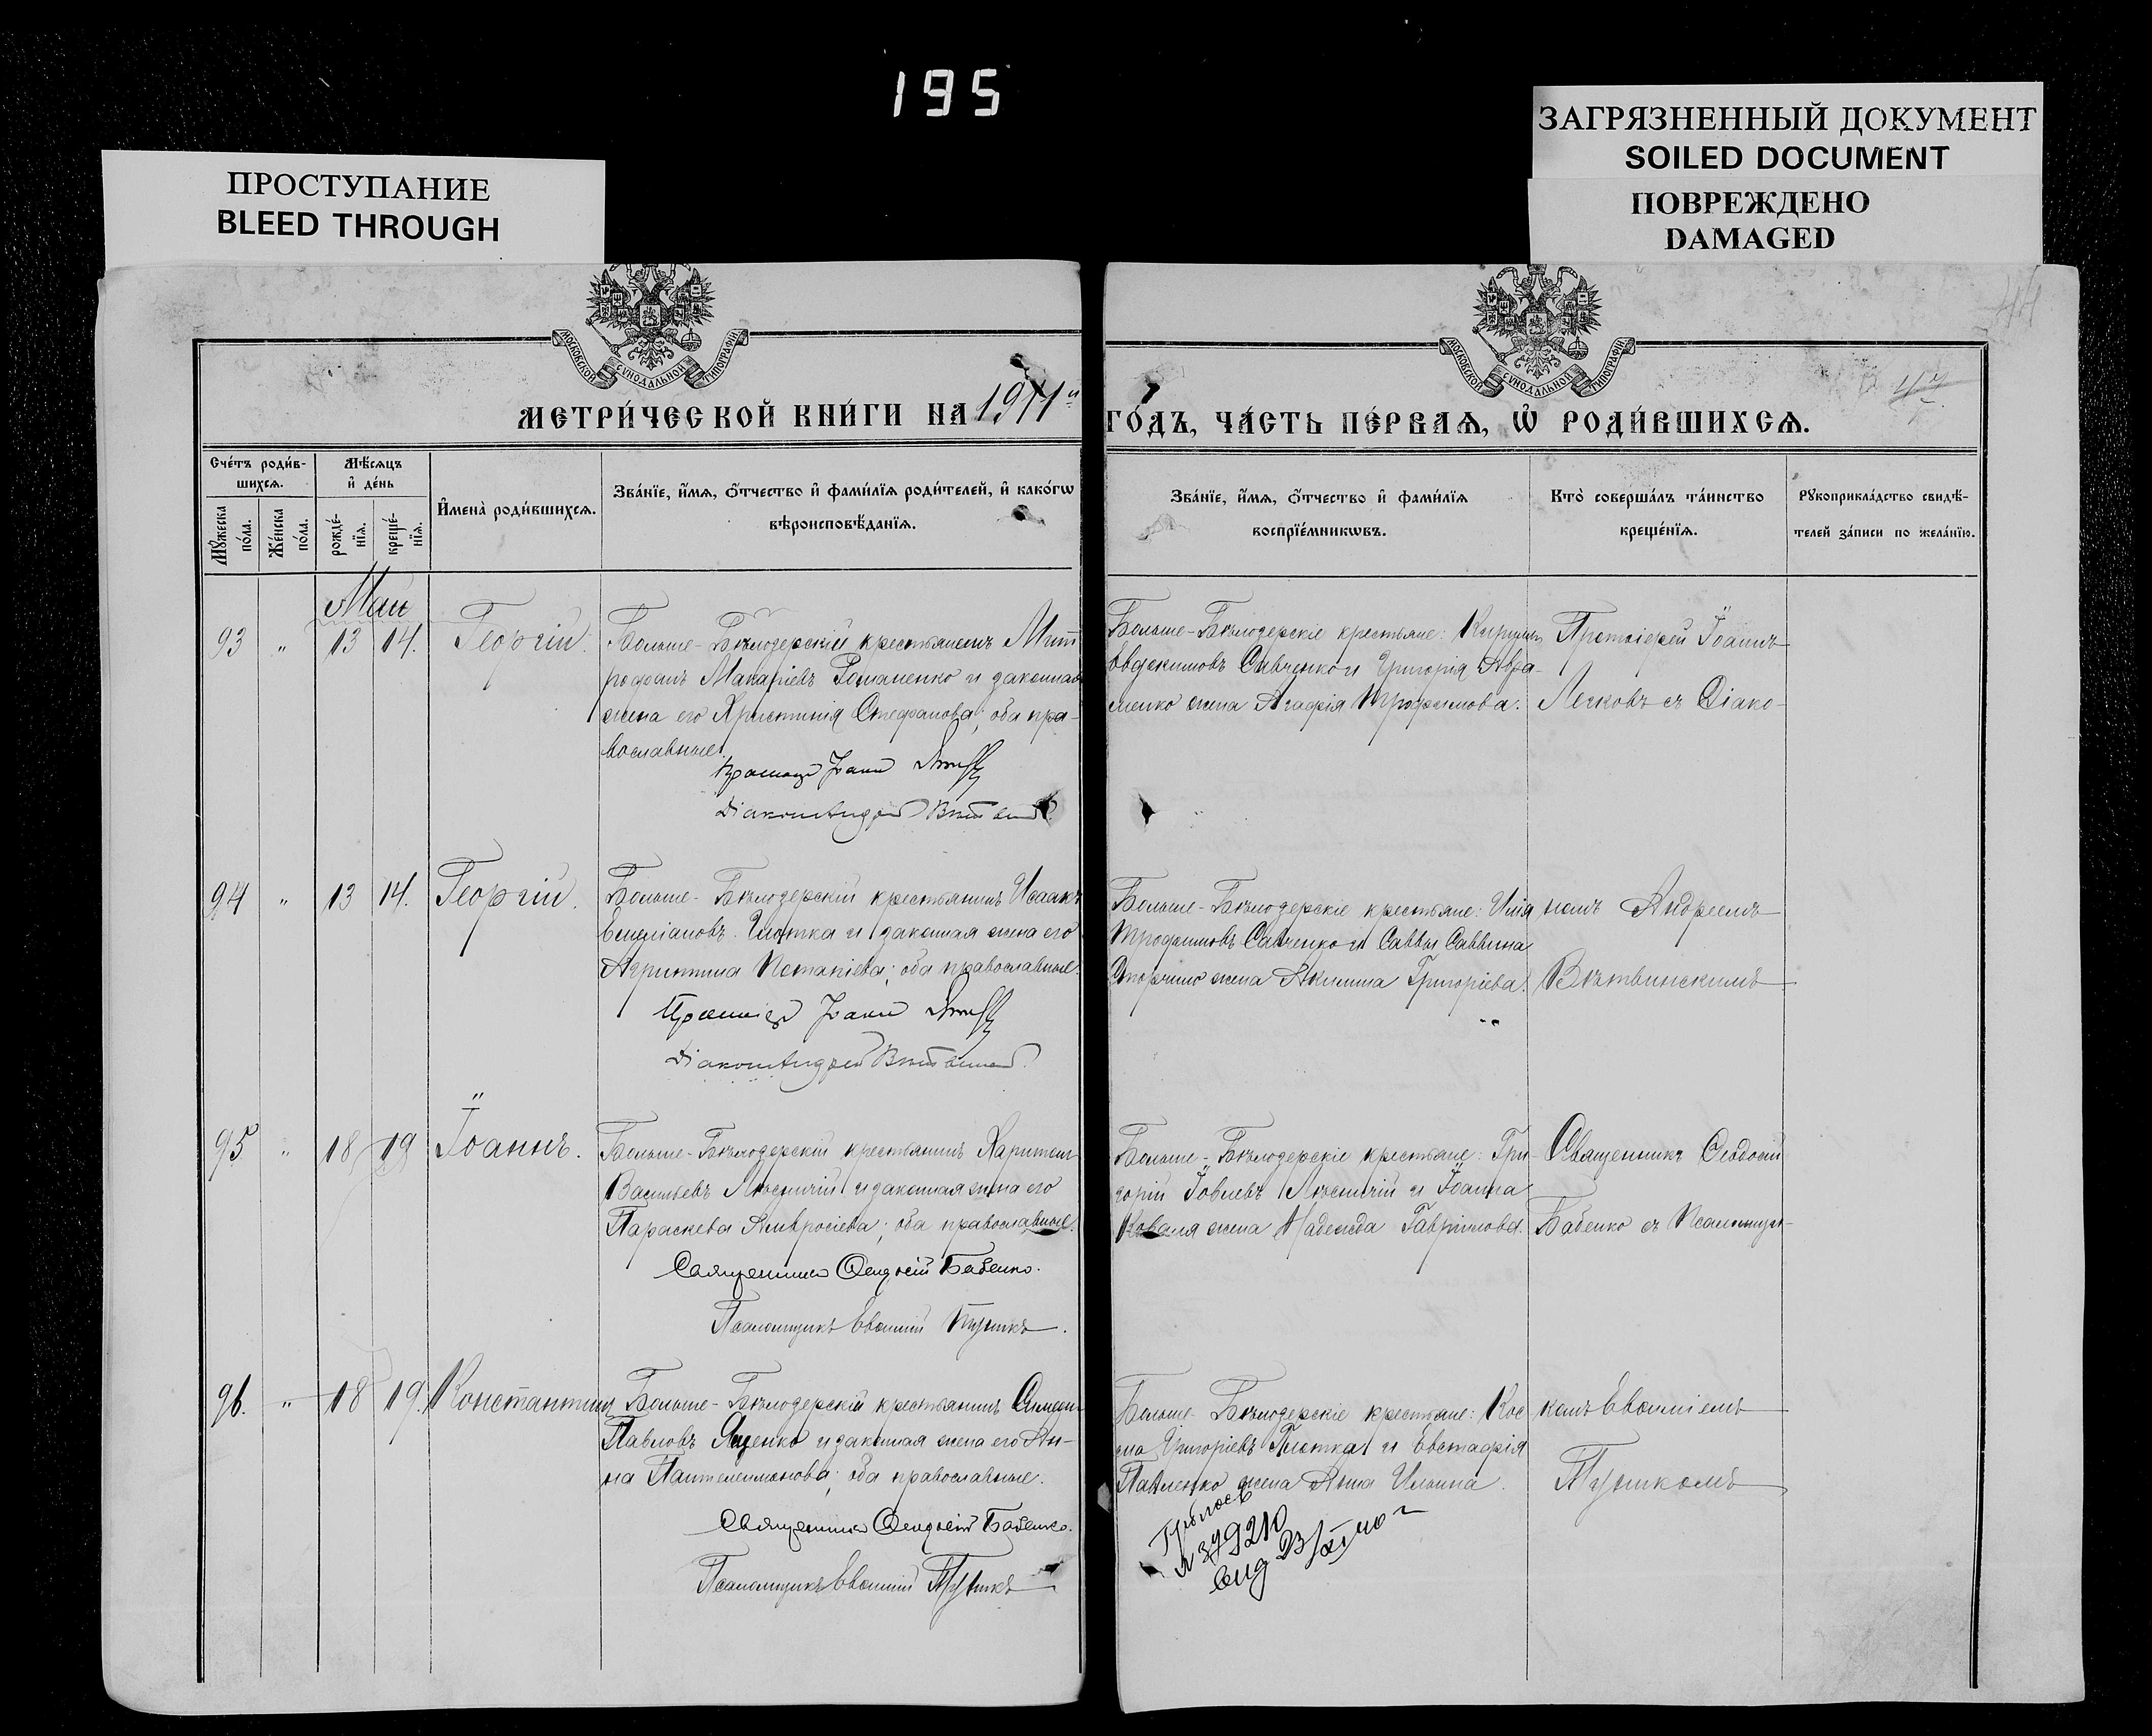 195
ПРОСТУПАНИЕ
BLEED THROUGH
ЗАГРЯЗНЕННЫЙ ДОКУМЕНТ
SOILED DOCUMENT
ПОВРЕЖДЕНО
DAMAGED
МОСКОВСКОЙ СУНОДАЛЬНОЙ ТИПОГРАФІИ
МОСКОВСКОЙ СУНОДАЛЬНОЙ ТИПОГРАФІИ
МЕТРИ́ЧЕСКОЙ КНИ́ГИ НА 1911й
ГО́ДЪ, ЧА́СТЬ ПЕ́РВАѦ, Ѽ РОДИ́ВШИХСѦ.
Сче́тъ роди́в-
шихсѧ.
Мѣ́сѧцъ
и҆ де́нь
Мꙋ́жеска
по́ла.
Же́нска
по́ла.
рожде́-
нїѧ.
креще́-
нїѧ.
И҆мена̀ роди́вшихсѧ.
Зва́нїе, и҆́мѧ, ѻ҆́тчество и҆ фамі́лїѧ роди́телей, и҆ како́гѡ
вѣроисповѣ́данїѧ.
Зва́нїе, и҆́мѧ, ѻ҆́тчество и҆ фамі́лїѧ
воспрїе́мникѡвъ.
Кто̀ соверша́лъ та́инство
креще́нїѧ.
Рꙋкоприкла́дство свидѣ́-
телей за́писи по жела́нїю.
Май
93 " 13 14. Георгій.
Больше-Бѣлозерскій крестьянинъ Мит
рофанъ Макаріевъ Романенко и законная
жена его Христинія Стефанова; оба пра-
вославные.
Діаконъ Андрей
Больше-Бѣлозерскіе крестьяне: Кириллъ
Евдокимовъ Савченко и Григорія Авра-
менко жена Агафія Трофимова.
Протоіерей Іоаннъ
Легковъ съ Діако-
94 " 13 14. Георгій.
Больше-Бѣлозерскій крестьянинъ Исаакъ
Емеліановъ Глотка и законная жена его
Агриппина Потапіева; оба православные.
Протоіер Іоанн
Діаконъ Андрей
Больше-Бѣлозерскіе крестьяне: Илія
Трофимовъ Савченко и Саввы Саввина
жена Акилина Григоріева.
номъ Андреемъ
Вѣтвинскимъ
95 " 18 19 Іоаннъ.
Больше-Бѣлозерскій крестьянинъ Харитонъ
Васильевъ Лѣсничій и законная жена его
Параскева Амвросіева; оба православные.
Священникъ Ѳеодосій Бабенко.
Псаломщикъ Евѳимій Пушикъ.
Больше-Бѣлозерскіе крестьяне: Гри-
горій Іовлевъ Лѣсничій и Іоанна
Коваля жена Надежда Гавріилова.
Священникъ Ѳеодосій
Бабенко съ Псаломщи-
96. " 18 19. Константинъ
Больше-Бѣлозерскій крестьянинъ
Павловъ Яценко и законная жена его Ан-
на Пантелеимонова; оба православные.
Священникъ Ѳеодосій Бабенко.
Псаломщикъ Евѳимій Пушикъ
Больше-Бѣлозерскіе крестьяне: Кос
ма Григоріевъ Глотка и Евстафія
Павленко жена Анна Ильина.
комъ Евѳиміемъ
Пушикомъ